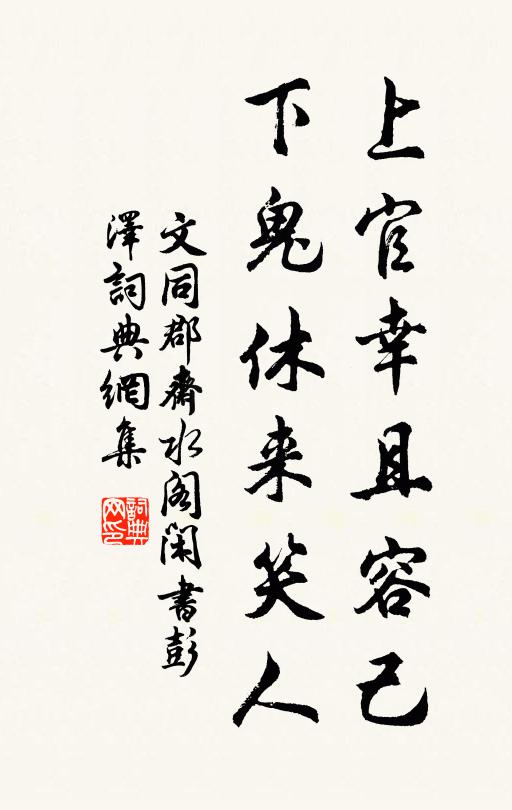 上官幸且容己
下鬼休来笑人
文同郡齋水阁闲書彭
澤詞典網集
詞典网印